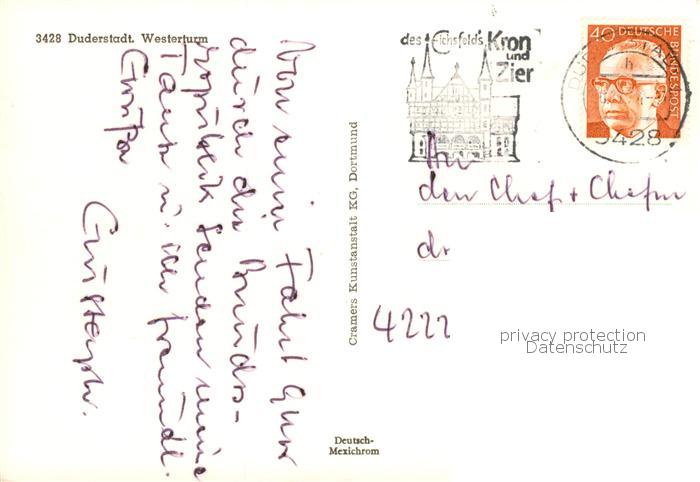 3428 Duderstadt. Westerturm
Von einer Fahrt quer
durch die Bundes-
republik senden meine
Tante u. ich freundl.
Grüße
des Eichsfelds Kron
und
Zier
40 DEUTSCHE
BUNDESPOST
3428
An
den Chef + Chefin
dr
4222
Cramers Kunstanstalt KG, Dortmund
privacy protection
Datenschutz
Deutsch-
Mexichrom